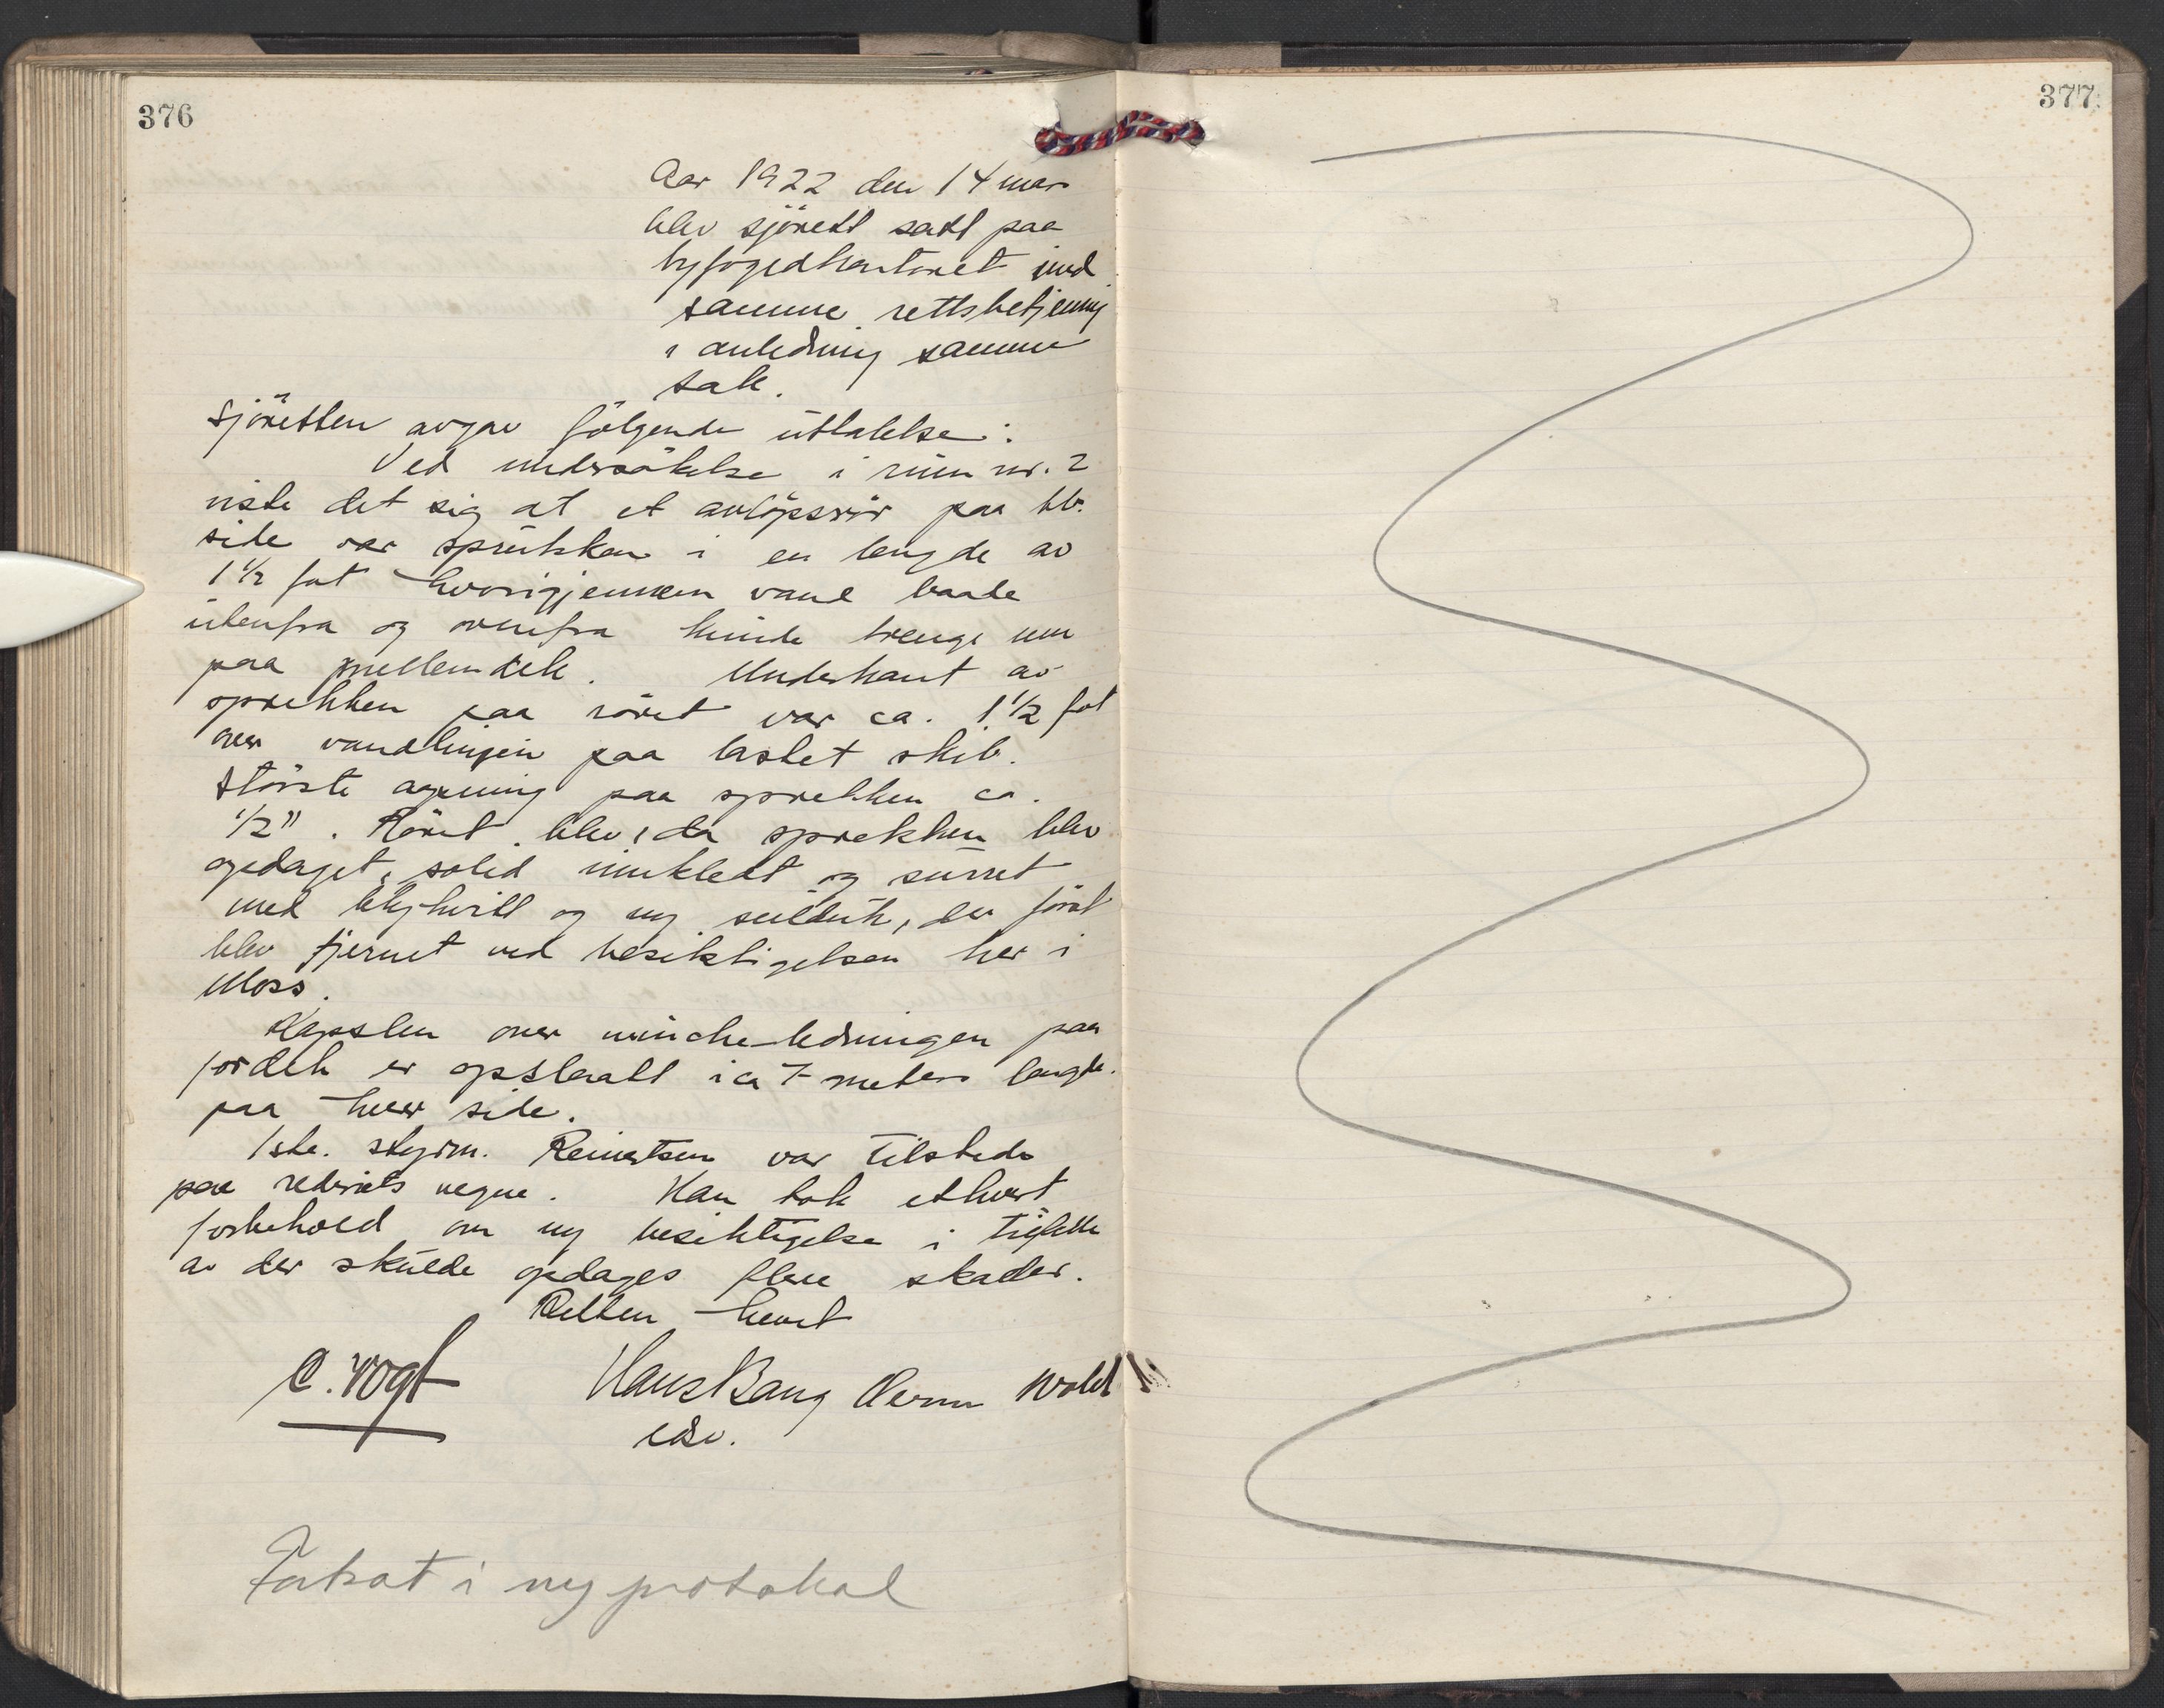 376
377
Aar 1922 den 14 mars
blev sjörett satt paa
byfogedkontoret med
samme rettsbetjening
i anledning samme
sak.
Sjöretten avgav fölgende uttalelse:
Ved undersökelse i rum nr. 2
viste det sig at et avlöpsrör paa bb.
side var sprukken i en lengde av
1 1/2 fot hvorigjennem vand baade
utenfra og ovenfra kunde trenge inn
paa mellemdek. Underkant av
sprekken paa röret var ca. 1 1/2 fot
over vandlinjen paa lastet skib.
Störste aapning paa sprekken ca.
1/2". Röret blev, da sprekken blev
opdaget, solid innkledt og surret
med blyhvitt og ny seilduk, der först
blev fjernet ved besiktigelsen her i
Moss.
Kapslen over winche-ledningen paa
fordek er opslaatt i ca 7 meters lengde
paa hver side.
1ste. styrm. Reinertsen var tilstede
paa rederiets vegne. Han tok ethvert
forbehold om ny besiktigelse i tilfelle
av der skulde opdages flere skader.
Retten hevet
C. Vogt Hans Bang Herm Wold
edsv.
Fortsat i ny protokol